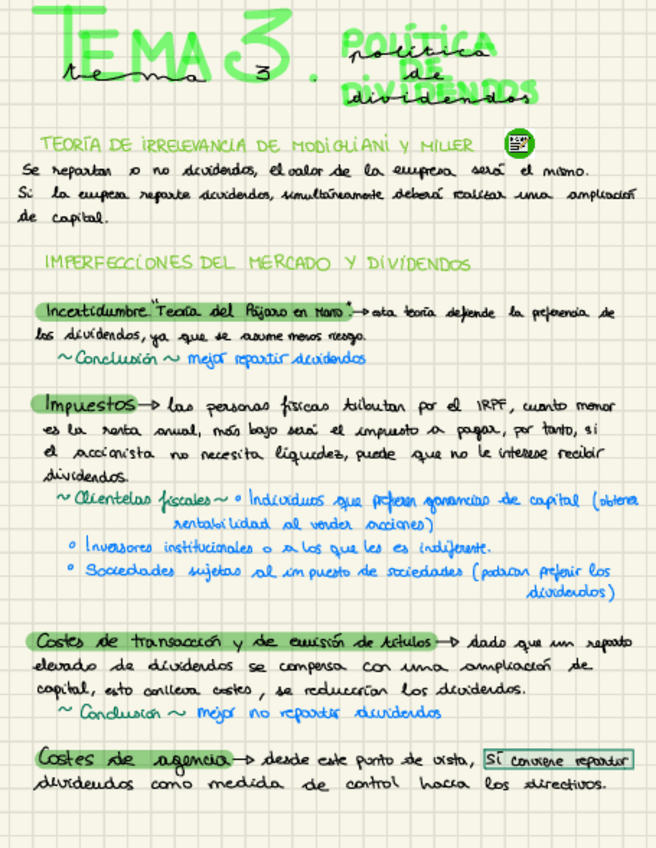 TEMA 3. POLÍTICA DE DIVIDENDOS
tema 3. política de dividendos
TEORÍA DE IRRELEVANCIA DE MODIGLIANI Y MILLER
Se repartan o no dividendos, el valor de la empresa será el mismo.
Si la empresa reparte dividendos, simultáneamente deberá realizar una ampliación
de capital.
IMPERFECCIONES DEL MERCADO Y DIVIDENDOS
Incertidumbre "Teoría del Pájaro en Mano" → esta teoría defiende la preferencia de
los dividendos, ya que se asume menos riesgo.
~ Conclusión ~ mejor repartir dividendos
Impuestos → las personas físicas tributan por el IRPF, cuanto menor
es la renta anual, más bajo será el impuesto a pagar, por tanto, si
el accionista no necesita liquidez, puede que no le interese recibir
dividendos.
~ Clientelas fiscales ~ • Individuos que prefieren ganancias de capital (obtener
rentabilidad al vender acciones)
• Inversores institucionales o a los que les es indiferente.
• Sociedades sujetas al impuesto de sociedades (podrían preferir los
dividendos)
Costes de transacción y de emisión de títulos → dado que un reparto
elevado de dividendos se compensa con una ampliación de
capital, esto conlleva costes, se reducirían los dividendos.
~ Conclusión ~ mejor no repartir dividendos
Costes de agencia → desde este punto de vista, sí conviene repartir
dividendos como medida de control hacia los directivos.